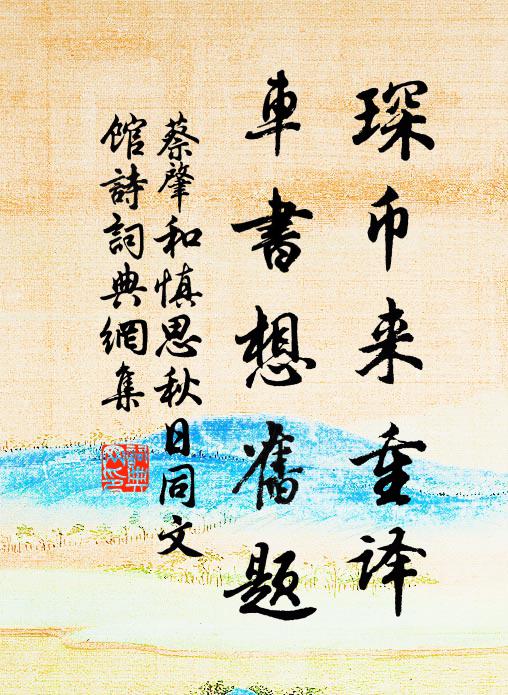 琛币来重译
車書想舊题
蔡肇和慎思秋日同文
館詩詞典網集